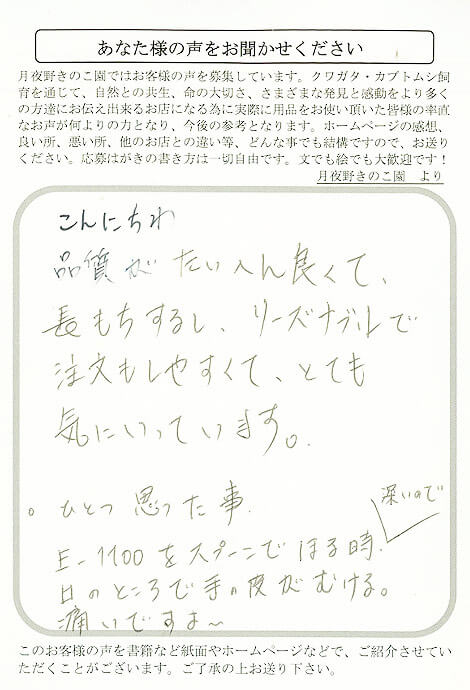 あなた様の声をお聞かせください
月夜野きのこ園ではお客様の声を募集しています。クワガタ・カブトムシ飼
育を通じて、自然との共生、命の大切さ、さまざまな発見と感動をより多く
の方達にお伝え出来るお店になる為に実際に用品をお使い頂いた皆様の率直
なお声が何よりの力となり、今後の参考となります。ホームページの感想、
良い所、悪い所、他のお店との違い等、どんな事でも結構ですので、お送り
ください。応募はがきの書き方は一切自由です。文でも絵でも大歓迎です！
月夜野きのこ園　より
こんにちわ
品質がたいへん良くて、
長もちするし、リーズナブルで
注文もしやすくて、とても
気にいっています。
。ひとつ思った事.
深いので
E-1100をスプーンでほる時.
日のところで手の皮がむける。
痛いですよ～
このお客様の声を書籍など紙面やホームページなどで、ご紹介させてい
ただくことがございます。ご了承の上お送り下さい。